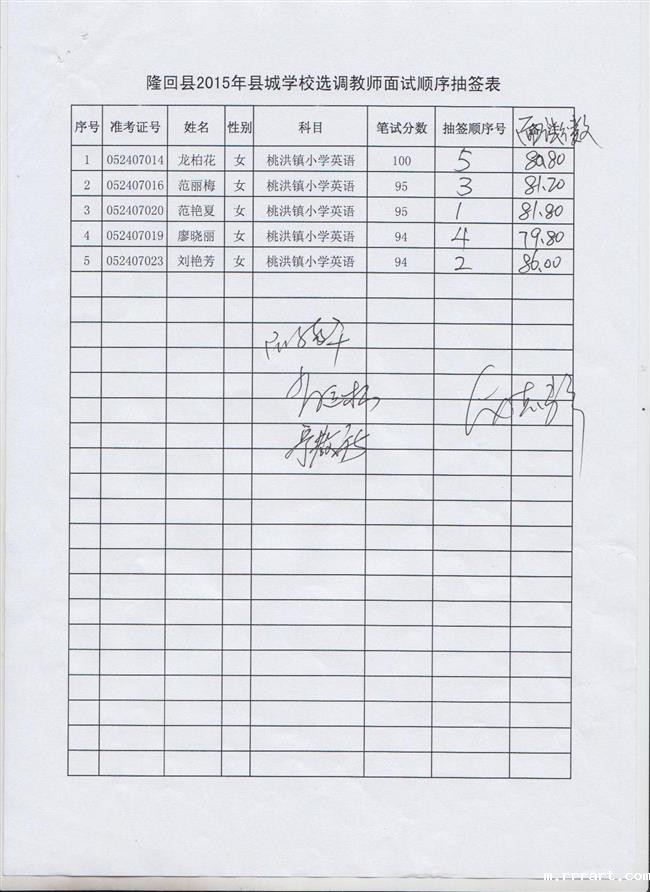 隆回县2015年县城学校选调教师面试顺序抽签表
序号 准考证号 姓名 性别 科目 笔试分数 抽签顺序号 面试分数
1 052407014 龙柏花 女 桃洪镇小学英语 100 5 80.80
2 052407016 范丽梅 女 桃洪镇小学英语 95 3 81.20
3 052407020 范艳夏 女 桃洪镇小学英语 95 1 81.80
4 052407019 廖晓丽 女 桃洪镇小学英语 94 4 79.80
5 052407023 刘艳芳 女 桃洪镇小学英语 94 2 86.00
m.rrrart.com